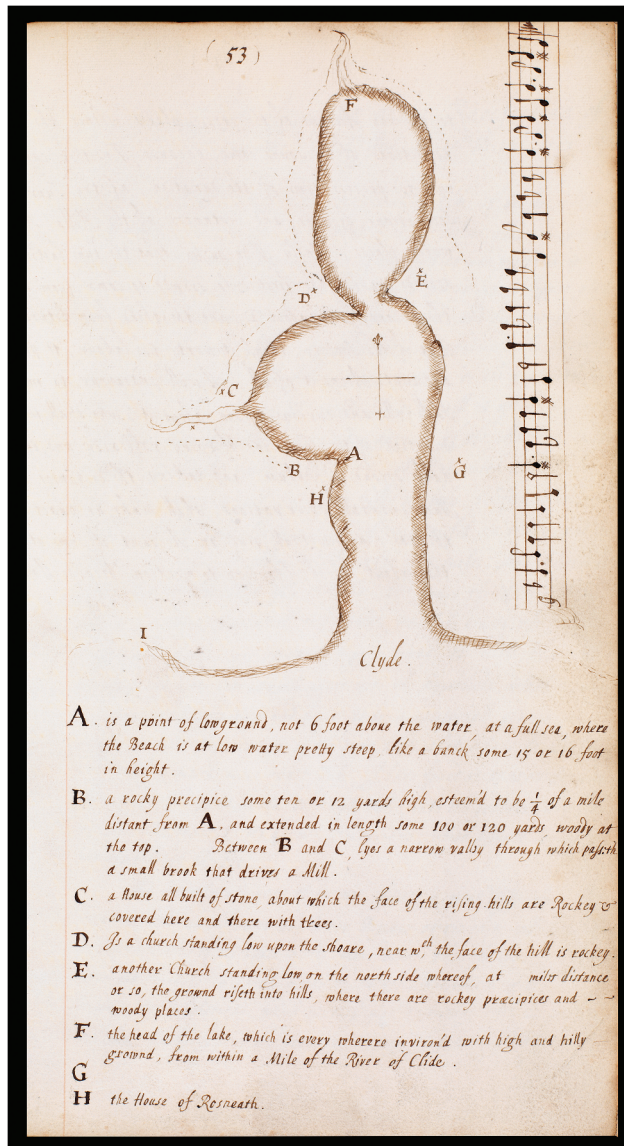 ( 53 )
F
D
E
C
A
B
G
H
I
Clyde .
A . is a point of lowground, not 6 foot aboue the water, at a full sea, where
the Beach is at low water pretty steep, like a banck some 15 or 16 foot
in height .
B . a rocky precipice some ten or 12 yards high, esteem'd to be ¼ of a mile
distant from A , and extended in length some 100 or 120 yards, woody at
the top . Between B and C , lyes a narrow vally through which passeth
a small brook that drives a Mill .
C . a House all built of stone, about which the face of the rising-hills are Rockey &
covered here and there with trees .
D . Js a church standing low upon the shoare , near wch, the face of the hill is rockey .
E . another Church standing low, on the north side whereof, at miles distance
or so, the ground riseth into hills, where there are rockey præcipices and
woody places .
F . the head of the lake, which is every wherere inviron'd with high and hilly
ground, from within a Mile of the River of Clide .
G
H the House of Rosneath .